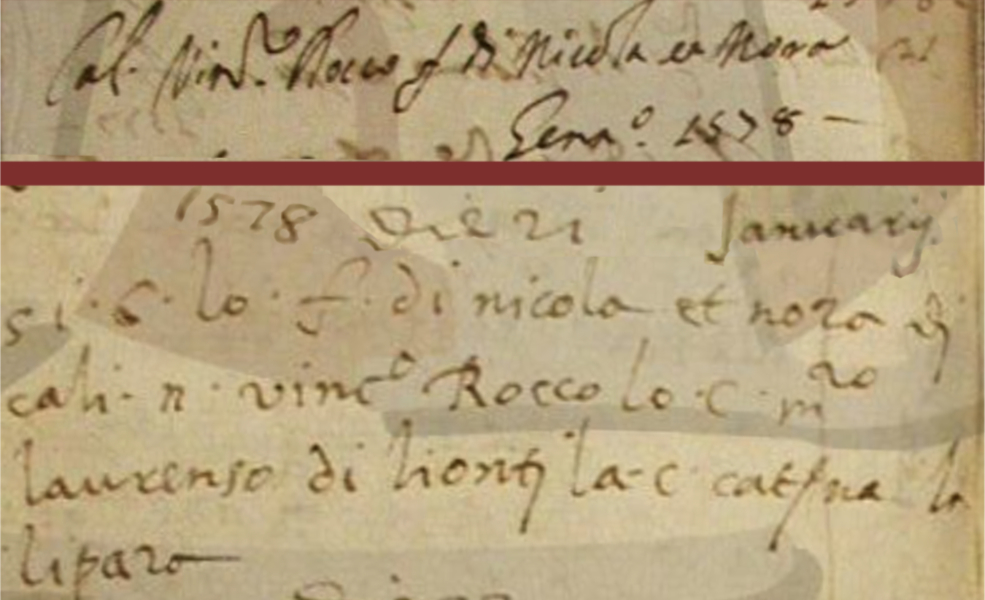 Cal. Vinc.º Rocco f di Nicola et Nora
Genn.º 1578 —
1578 Die 21 Januarij
si · b · lo · f · di nicola et nora di
cali · n · vincº Rocco lo · c · mro
laurenso di lionti la · c · catrina la
liparo